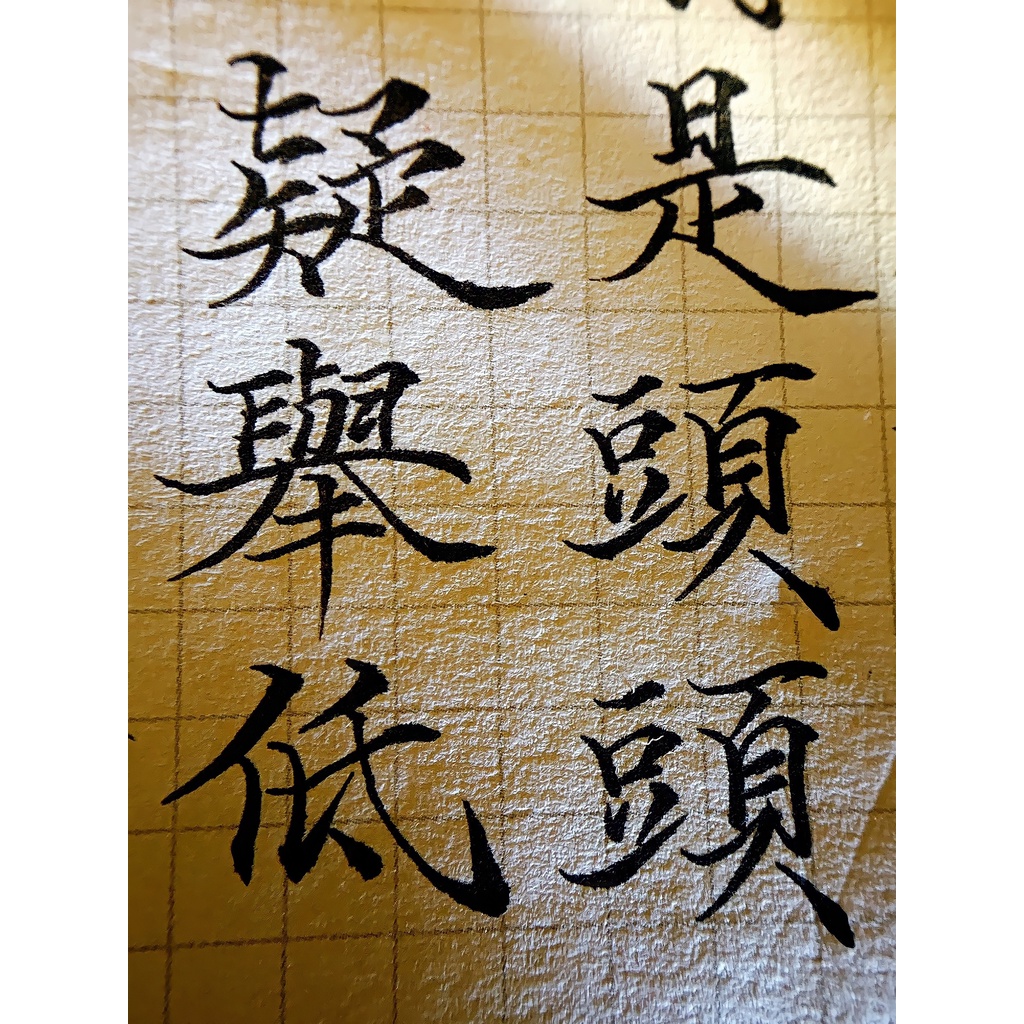 疑是
舉頭
低頭